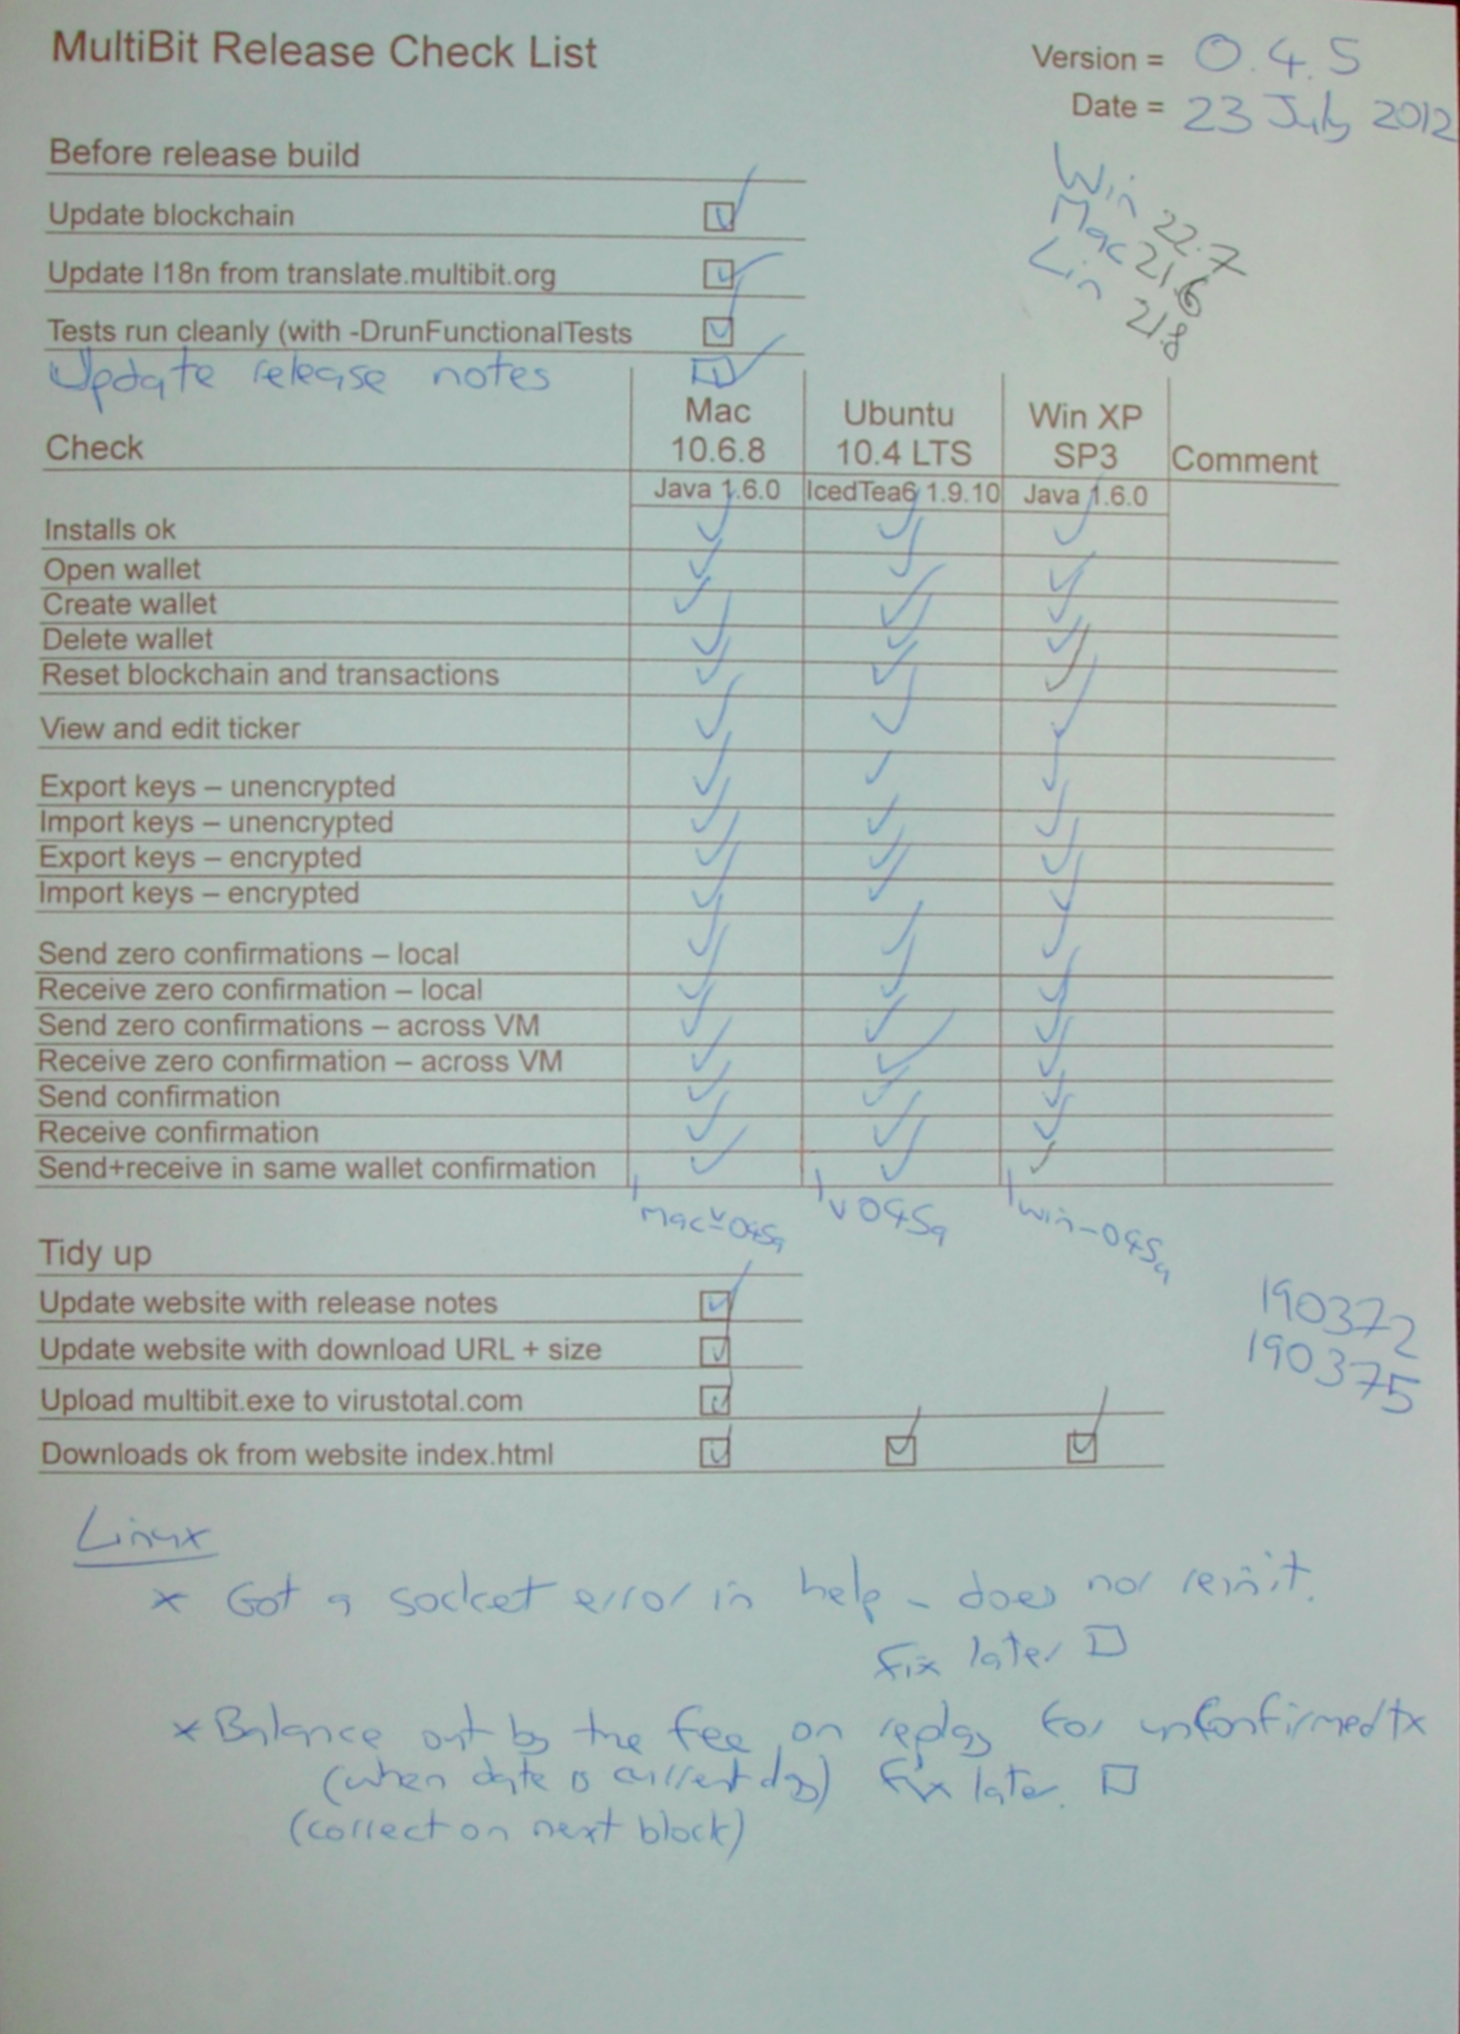 MultiBit Release Check List
Version = 0.4.5
Date = 23 July 2012
Before release build
Win 22.7
Mac 21.6
Lin 21.8
Update blockchain
Update I18n from translate.multibit.org
Tests run cleanly (with -DrunFunctionalTests
Update release notes
Check Mac 10.6.8 Ubuntu 10.4 LTS Win XP SP3 Comment
Java 1.6.0 IcedTea6 1.9.10 Java 1.6.0
Installs ok
Open wallet
Create wallet
Delete wallet
Reset blockchain and transactions
View and edit ticker
Export keys – unencrypted
Import keys – unencrypted
Export keys – encrypted
Import keys – encrypted
Send zero confirmations – local
Receive zero confirmation – local
Send zero confirmations – across VM
Receive zero confirmation – across VM
Send confirmation
Receive confirmation
Send+receive in same wallet confirmation
v045a win-045a
Tidy up
Update website with release notes
190372
Update website with download URL + size
190375
Upload multibit.exe to virustotal.com
Downloads ok from website index.html
Linux
* Got a socket error in help - does not reinit.
Fix later □
* Balance out by the fee on replay for unconfirmed tx
(when date is current day) Fix later. □
(correct on next block)